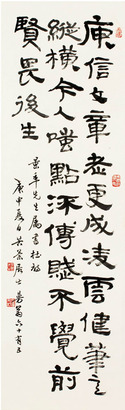 庾信文章老更成凌雲健筆意
縱橫今人嗤點流傳賦不覺前
賢畏後生
年先生屬書杜詩
庚申夏日居士翁六十有